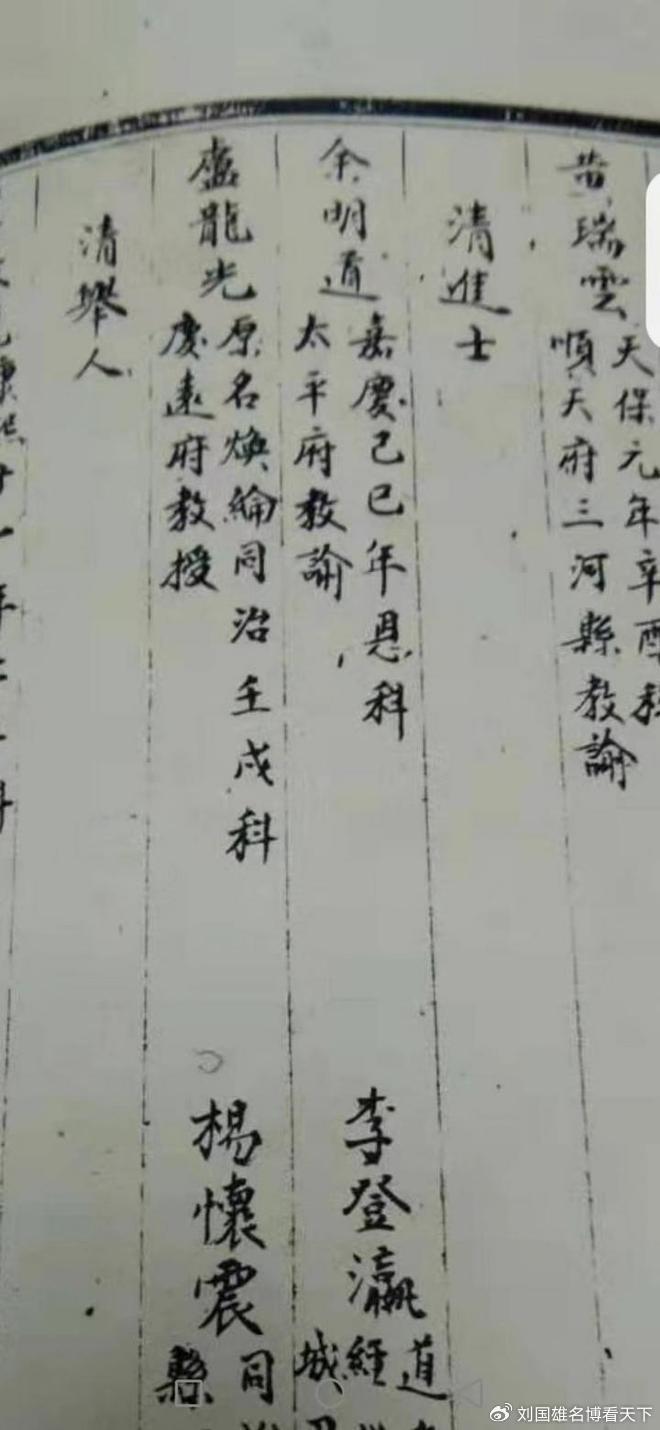 黄瑞雲
天保元年辛酉科
順天府三河縣教諭
清進士
余明道
嘉慶己巳年恩科
太平府教諭
李登瀛
道
經
城
盧龍光
原名煥綸同治壬戌科
慶遠府教授
楊懷震
同
縣
清舉人
刘国雄名博看天下